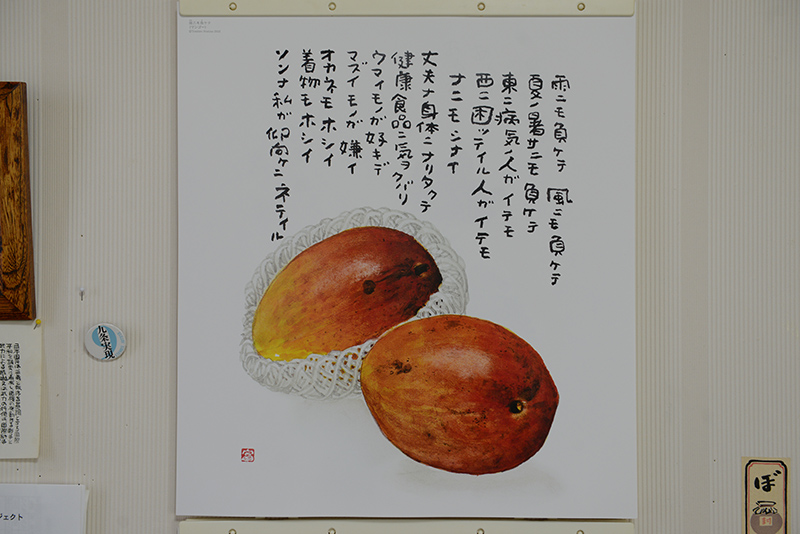 雨ニモ負ケテ 風ニモ負ケテ
夏ノ暑サニモ負ケテ
東ニ病気ノ人ガイテモ
西ニ困ッテイル人ガイテモ
ナニモシナイ
丈夫ナ身体ニナリタクテ
健康食品ニ気ヲクバリ
ウマイモノガ好キデ
マズイモノガ嫌イ
オカネモホシイ
着物モホシイ
ソンナ私ガ仰向ケニネテイル
九条実現
ジェクト
ぼ